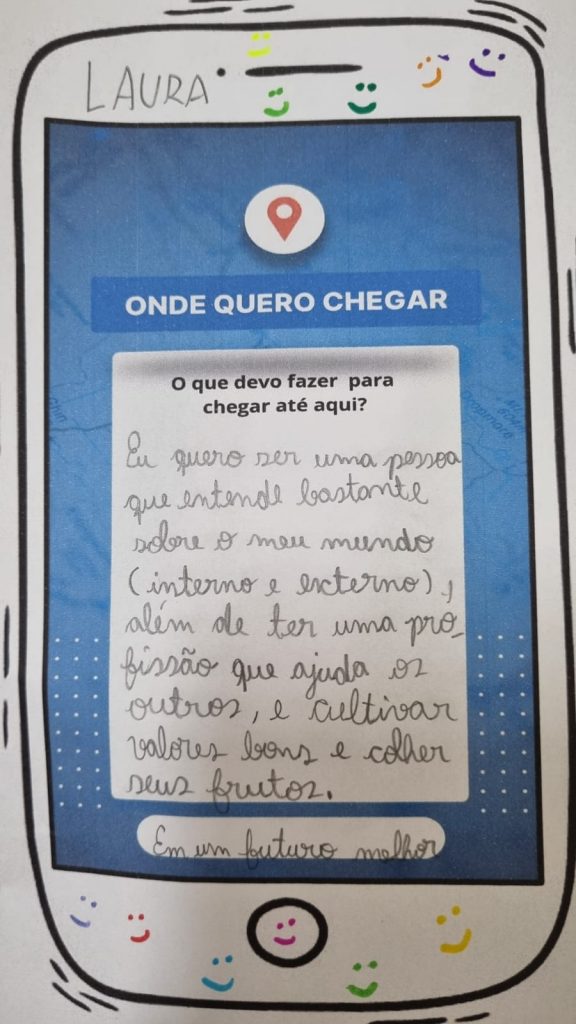 LAURA
ONDE QUERO CHEGAR
O que devo fazer para
chegar até aqui?
Eu quero ser uma pessoa
que entende bastante
sobre o meu mundo
(interno e externo),
além de ter uma pro_
fissão que ajuda os
outros, e cultivar
valores bons e colher
seus frutos.
Em um futuro melhor